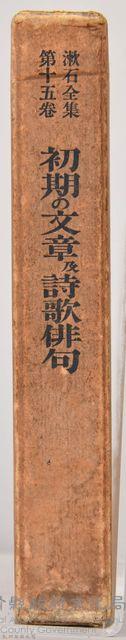 漱石全集
第十五卷
初期の文章及詩歌俳句
County Government